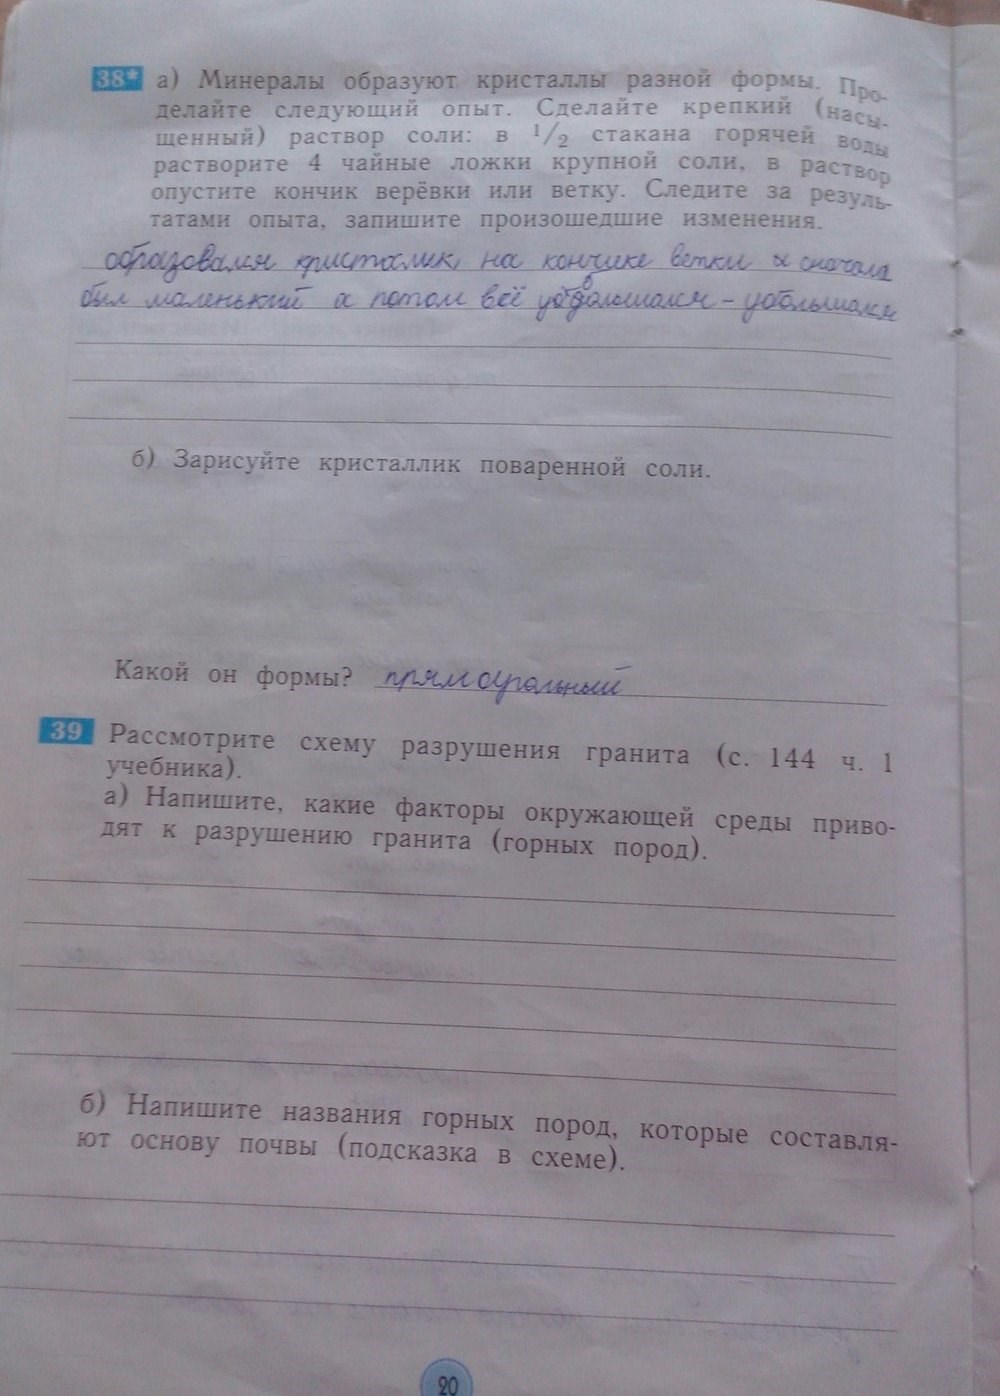 38* а) Минералы образуют кристаллы разной формы. Про-
делайте следующий опыт. Сделайте крепкий (насы-
щенный) раствор соли: в 1/2 стакана горячей воды
растворите 4 чайные ложки крупной соли, в раствор
опустите кончик верёвки или ветку. Следите за резуль-
татами опыта, запишите произошедшие изменения.
образовался кристалик на кончике ветки и сначала
был маленький а потом всё увеличивался – увеличивался
б) Зарисуйте кристаллик поваренной соли.
Какой он формы? прямоугольный
39 Рассмотрите схему разрушения гранита (с. 144 ч. 1
учебника).
а) Напишите, какие факторы окружающей среды приво-
дят к разрушению гранита (горных пород).
б) Напишите названия горных пород, которые составля-
ют основу почвы (подсказка в схеме).
20